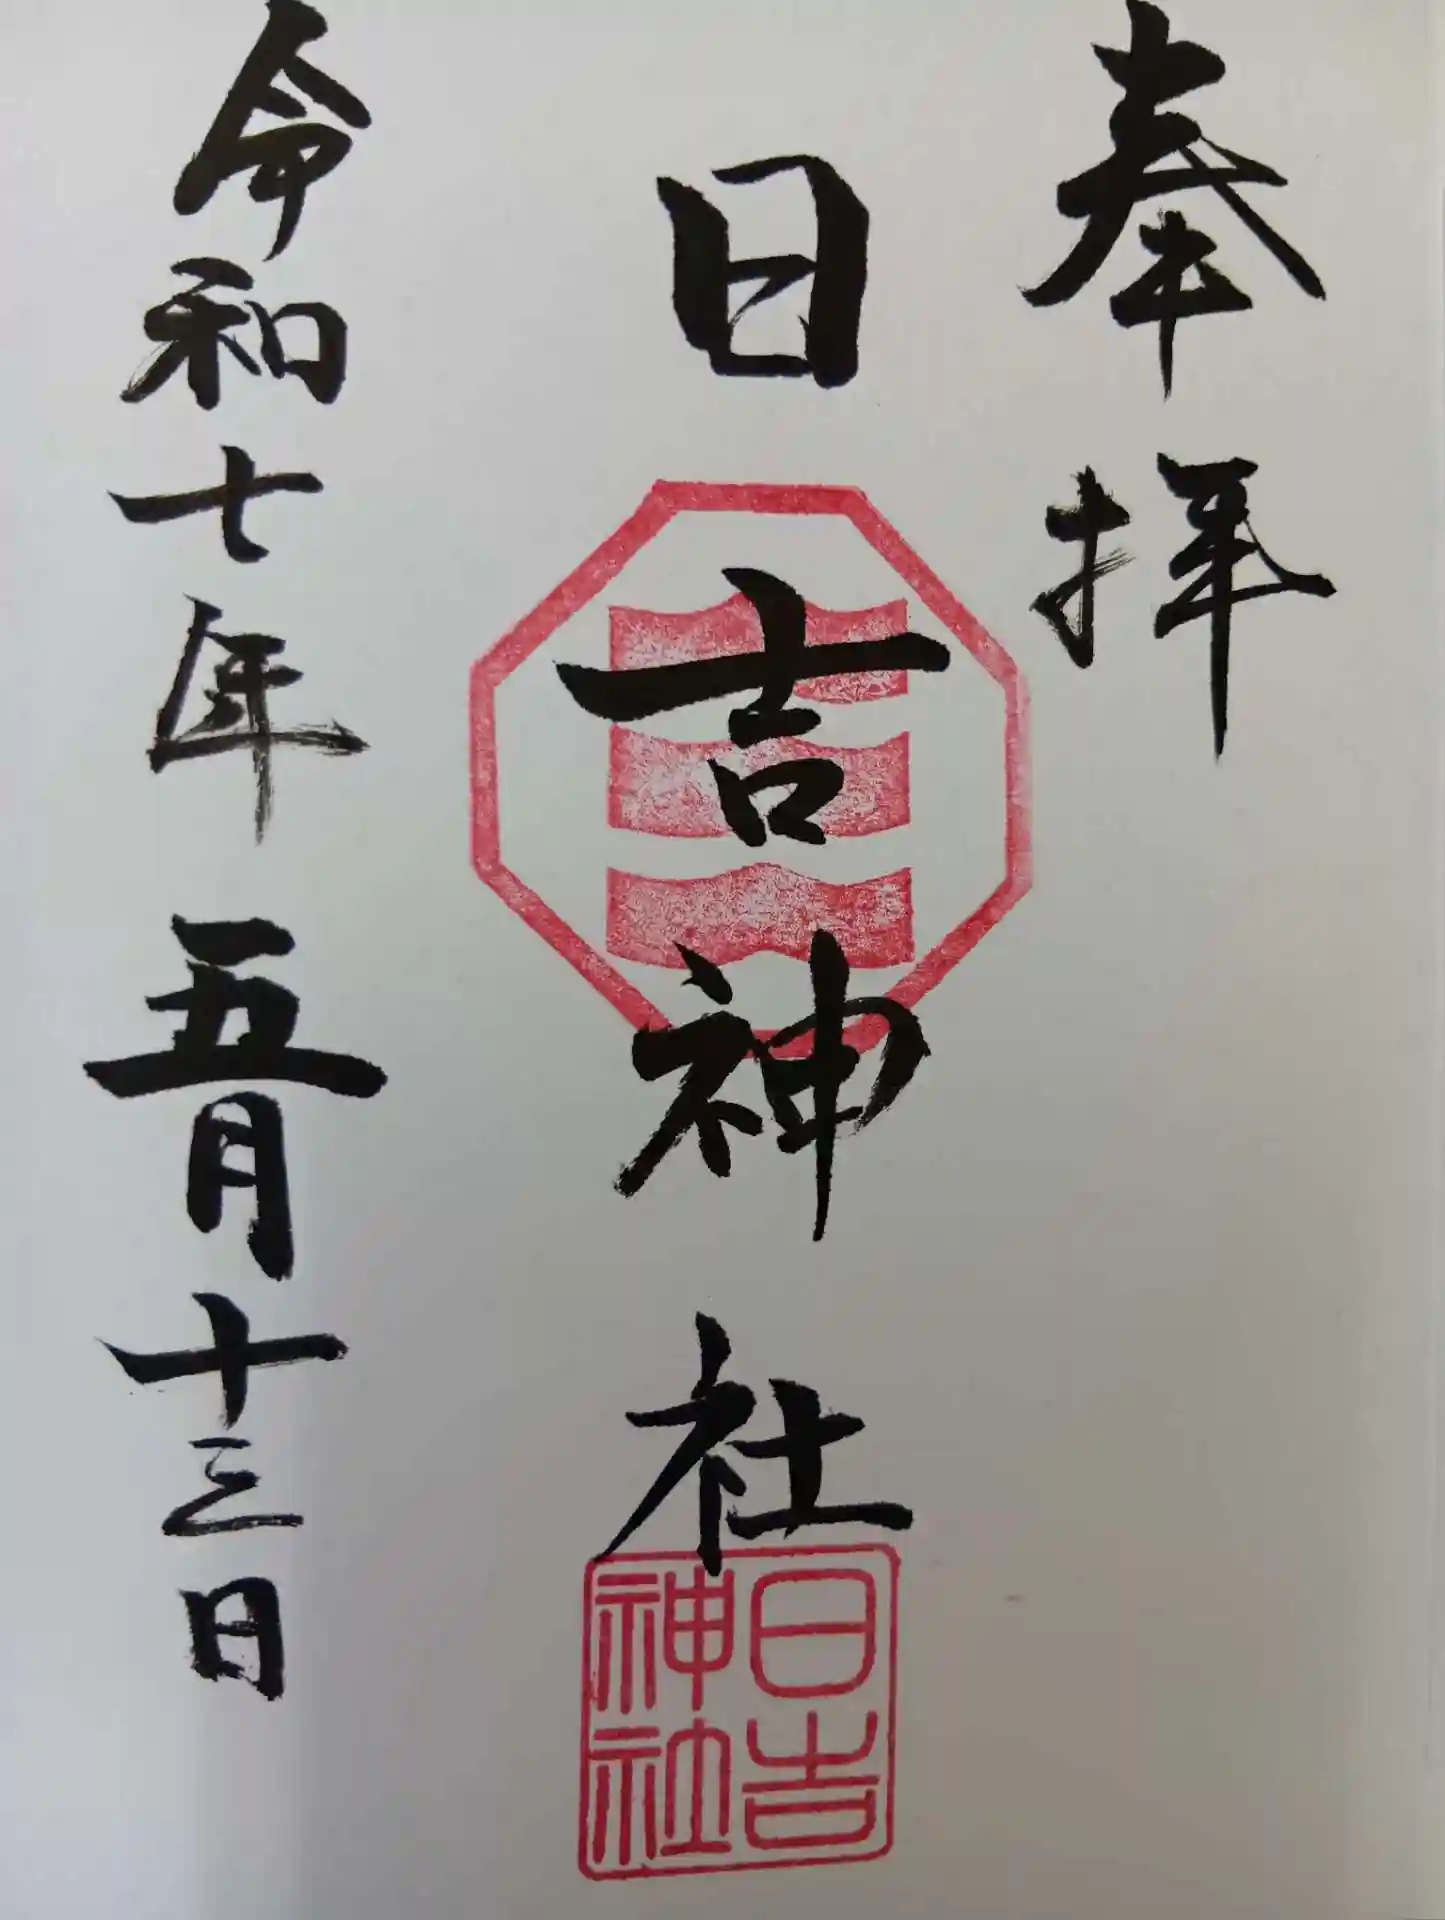 奉拝
日吉神社
日吉
神社
令和七年五月十三日